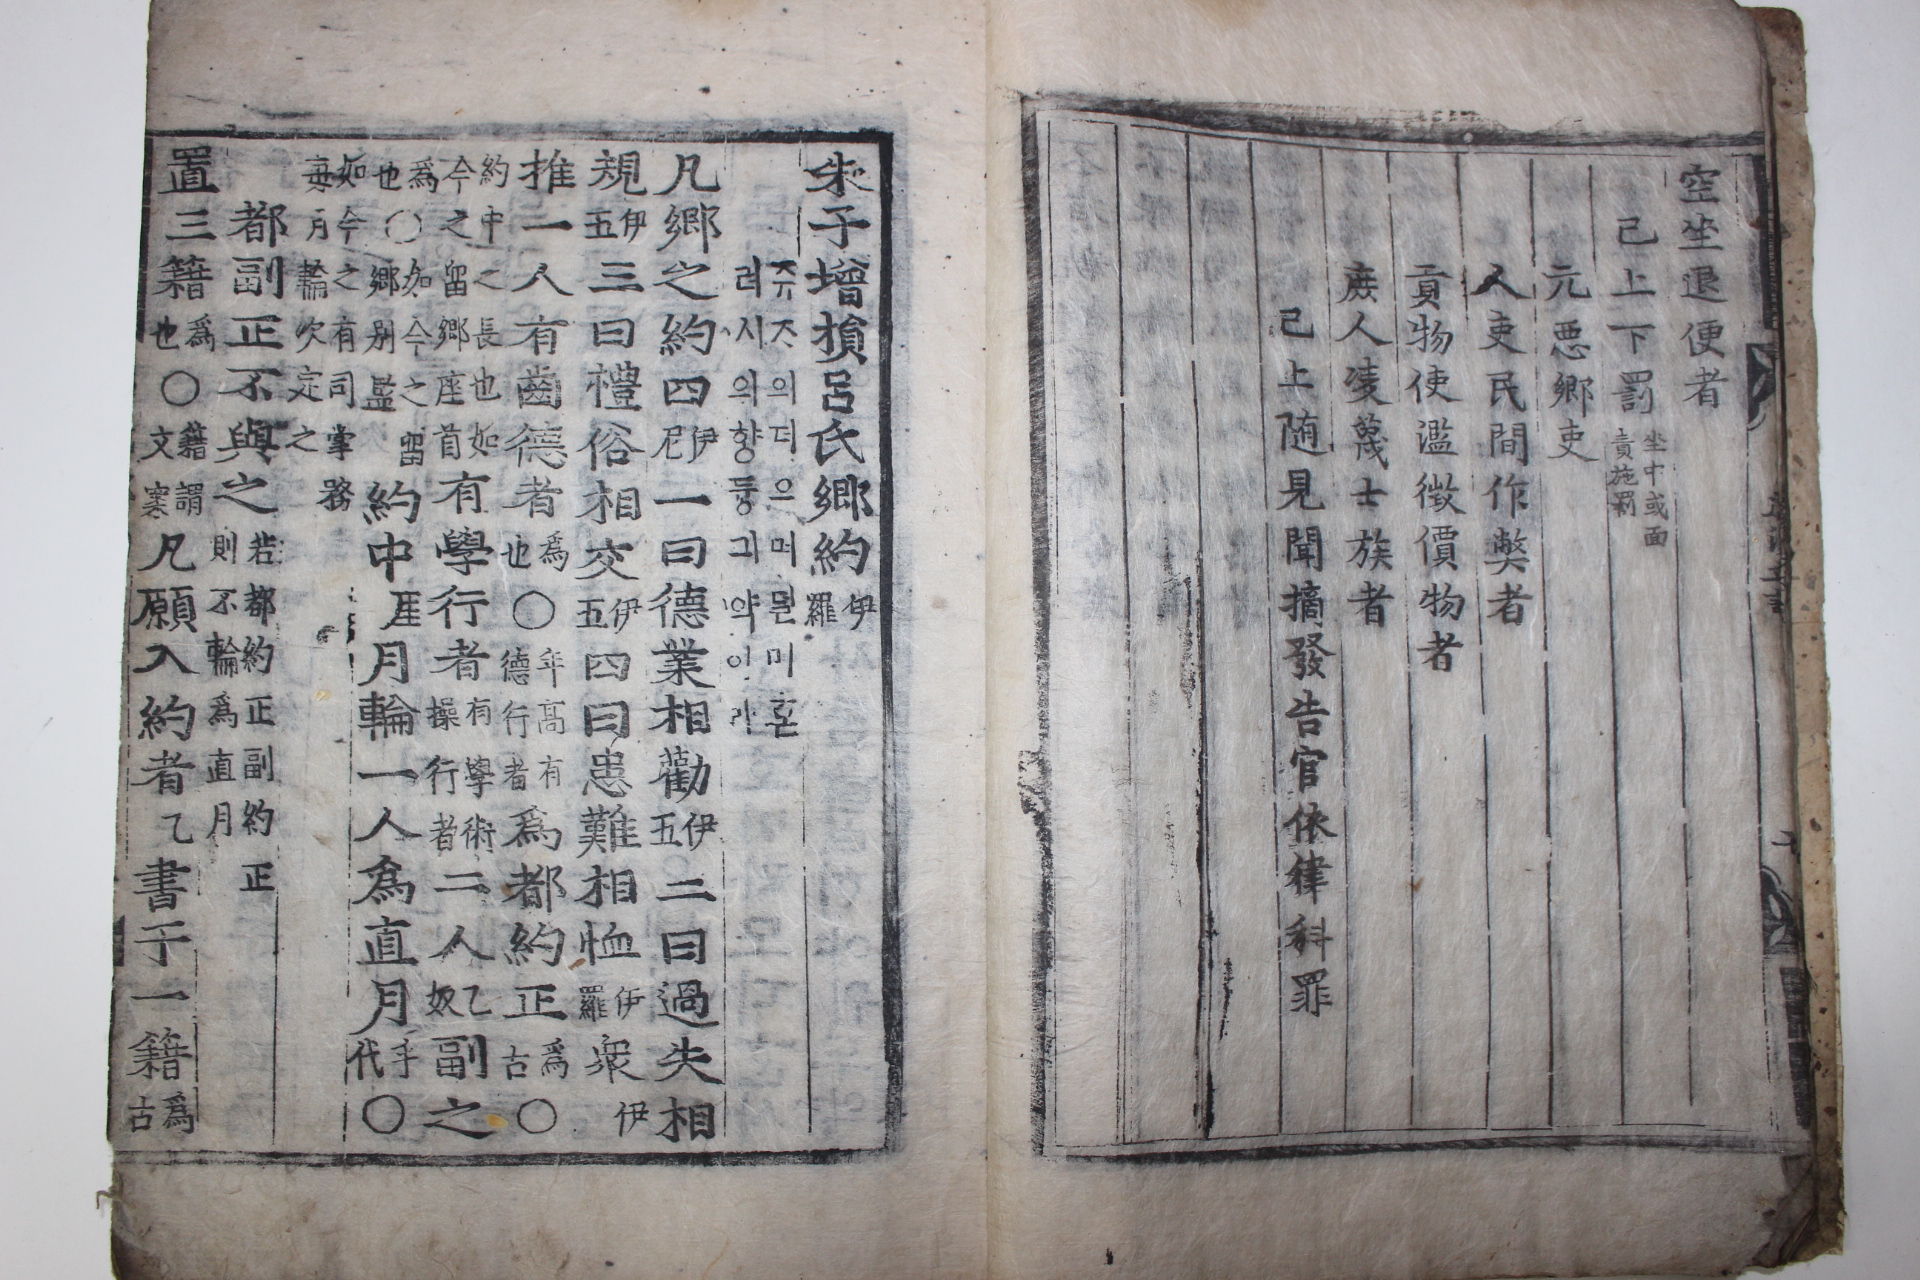 空坐退便者
已上下罰坐中或面責施罰
元惡鄉吏
人吏民間作弊者
貢物使濫徵價物者
庶人凌蔑士族者
已上随見聞摘發告官依律科罪
朱子增損呂氏鄉約伊羅
쥬즈의더으며던미혼
려시의향듕긔약이라
凡鄉之約四伊尼一曰德業相勸伊五二曰過失相
規伊五三曰禮俗相交伊五四曰患難相恤伊羅衆伊
推一人有齒德者爲也○年高有德行者爲都約正爲古○
約中之長也如今之留鄉座首有學行者有學術操行者二人乙奴副之
爲也○如今之留鄉別監約中厓月輪一人爲直月手代○
如今之有司掌務每月輪次定之
都副正不與之若都約正副約正則不輪爲直月
置三籍爲也○籍謂文案凡願入約者乙書于一籍爲古